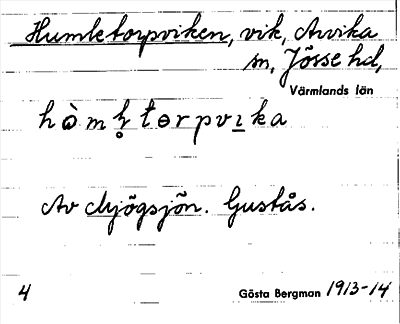 Humletorpviken, vik, Arvika
sn, Jösse hd,
Värmlands län
hòmḷtɵrpvıka
Av Mjögsjön. Gustås.
4 Gösta Bergman 1913-14